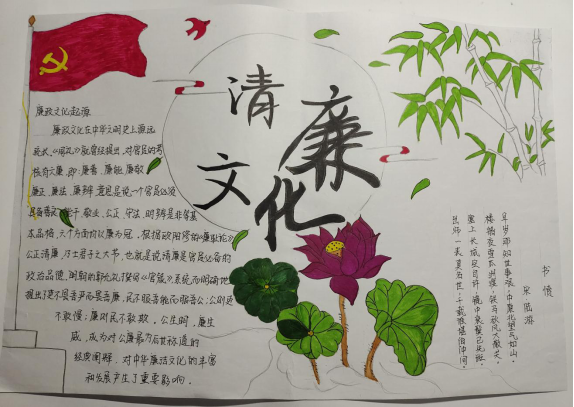 清廉文化
廉政文化起源
廉政文化在中华文明史上源远
流长,《周礼》就曾经提出,对官员的考
核有六廉,即:廉善,廉能,廉敬
廉正,廉法,廉辨,意思是说一个官员必须
具备善良、能干,敬业,公正,守法,明辨是非等基
本品格,六个方面均以廉为冠。根据欧阳修的《廉耻论》
公正清廉,乃士君子之大节,也就是说清廉是官员必备的
政治品德,明朝的郭允礼撰写《官箴》系统而明确地
提出了吏不畏吾严而畏吾廉,民不服吾能而服吾公;公则吏
不敢慢;廉则民不敢欺,公生明,廉生
威,成为对公廉最为后世称道的
经典阐释,对中华廉洁文化的丰富
和发展产生了重要影响。
书愤
宋 陆游
早岁那知世事艰,中原北望气如山。
楼船夜雪瓜洲渡,铁马秋风大散关。
塞上长城空自许,镜中衰鬓已先斑。
出师一表真名世,千载谁堪伯仲间。